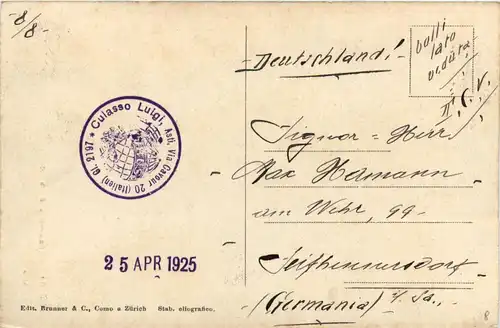 -8/8-
Deutschland!
bolli
lato
veduta
T.C.V.
* Culasso Luigi, Asti, Via Cavour 20 (Italien) GL. 2197
Signor = Herr
Max Hamann
am Wehr, 99-
Seifhennersdorf
(Germania) i/Sa.,
25 APR 1925
Edit. Brunner & C., Como e Zürich Stab. eliografico.
8